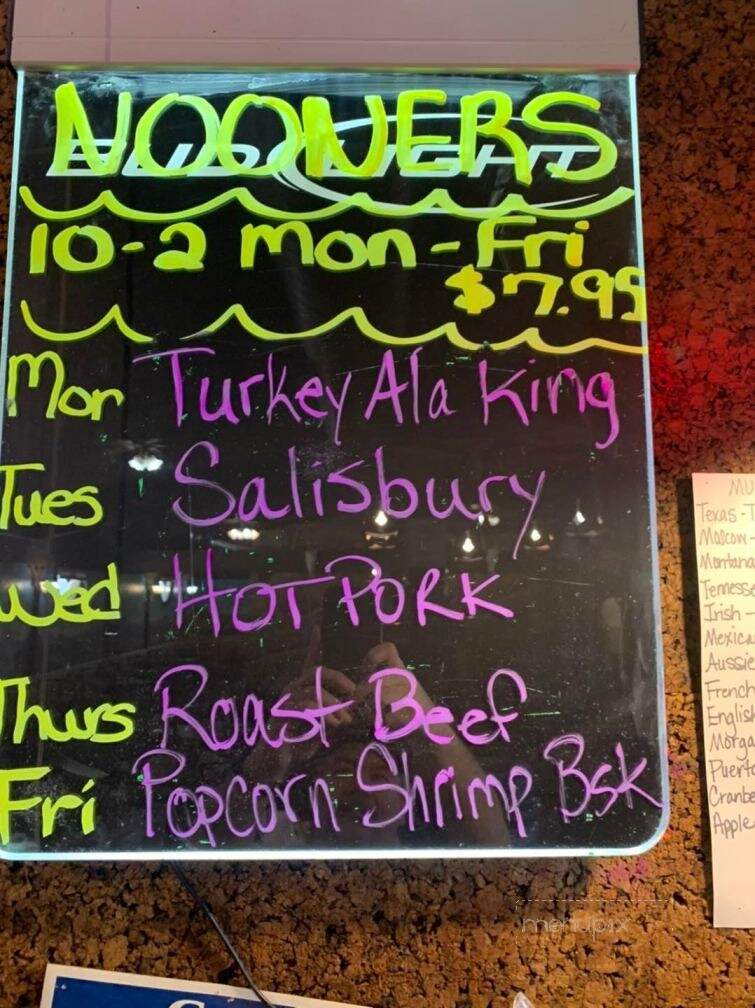 NOONERS
BUD LIGHT
10-2 Mon-Fri
$7.95
Mon Turkey Ala King
Tues Salisbury
Wed Hot Pork
Thurs Roast Beef
Fri Popcorn Shrimp Bsk
MU
Texas - T
Moscow -
Montana
Tennesse
Irish -
Mexica
Aussie
French
English
Morga
Puerto
Cranbe
Apple
menupix